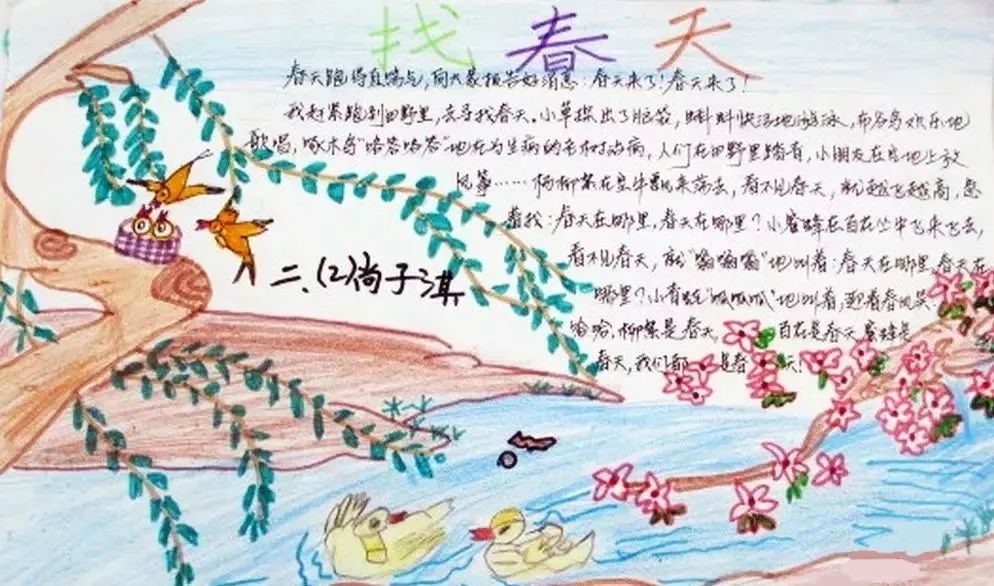 找春天
春天跑得直喘气,向大家报告好消息:春天来了!春天来了!
我赶紧跑到田野里,去寻找春天。小草探出了脑袋,蝌蚪快活地游泳,布谷鸟欢乐地
歌唱,啄木鸟"咯答咯答"地在为生病的老树治病,人们在田野里踏青,小朋友在空地上放
风筝……杨柳絮在空中飘来荡去,看不见春天,就越飞越高,急
着找:春天在哪里,春天在哪里?小蜜蜂在百花丛中飞来飞去,
看不见春天,就"嗡嗡嗡"地叫着:春天在哪里春天在
哪里?小青蛙"呱呱呱"地叫着,迎着春风笑
哈哈,柳絮是春天,百花是春天蜜蜂是
春天,我们都是春天!
二、(2)尚子淇